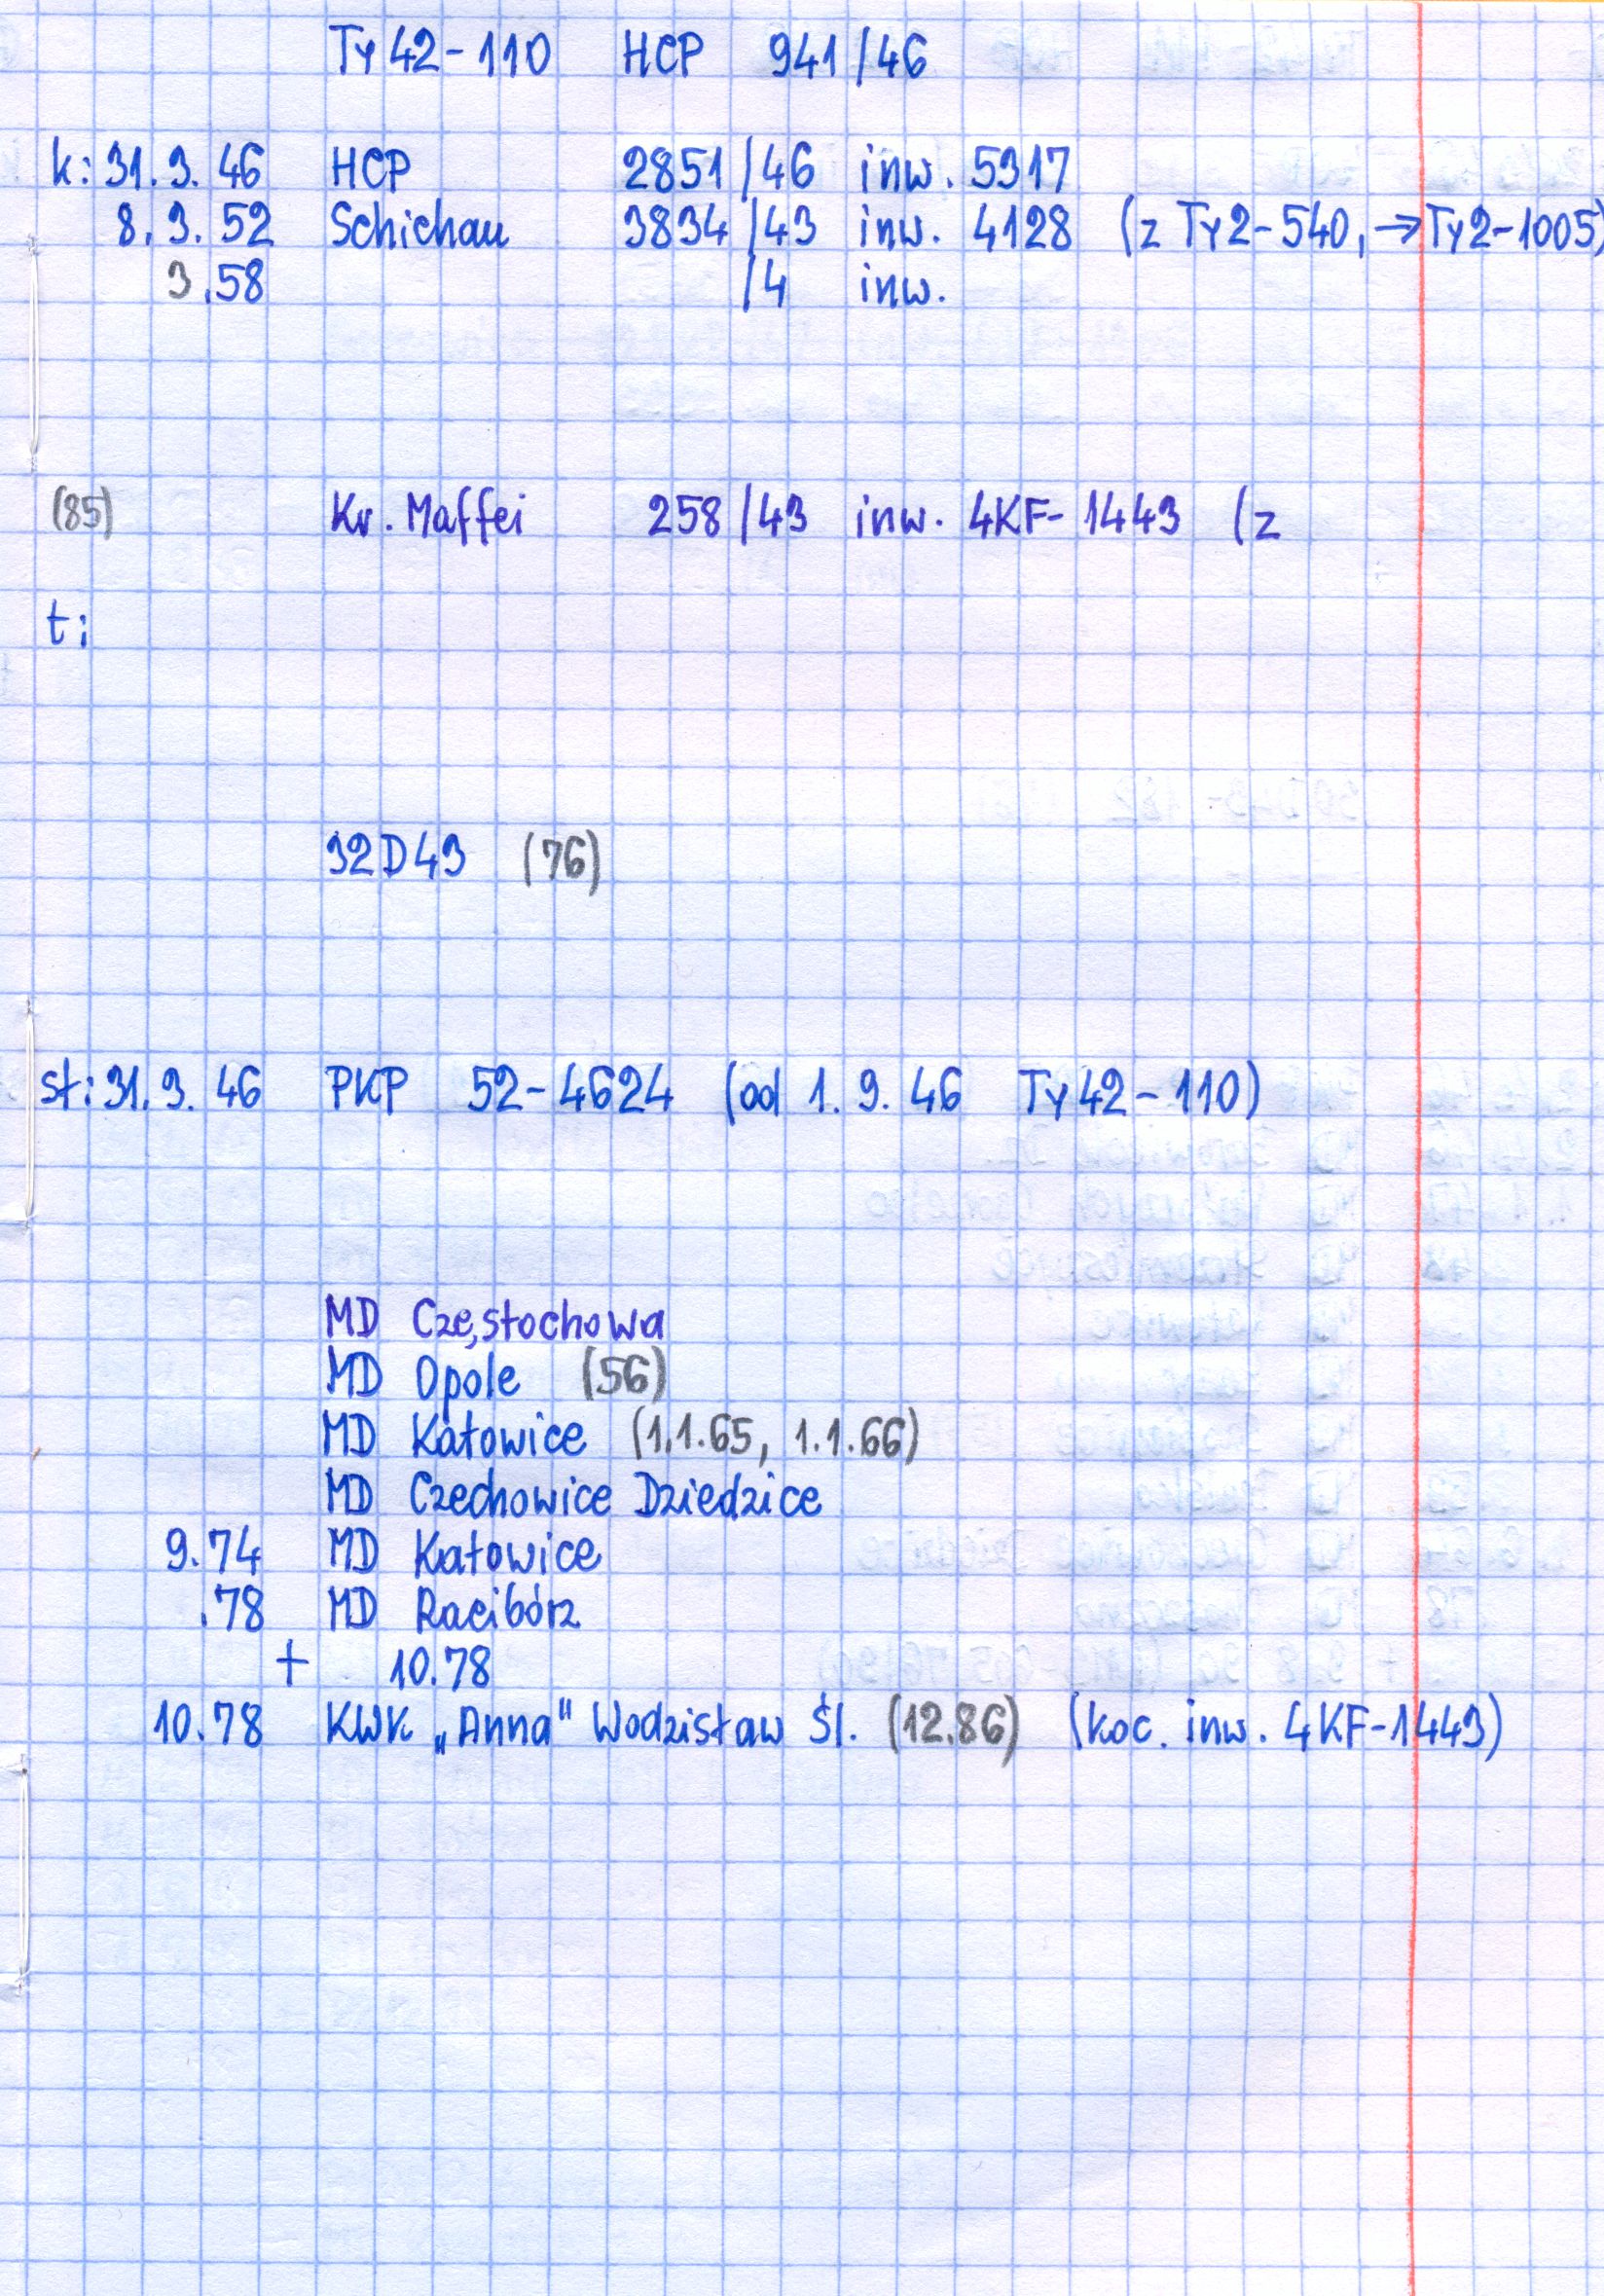 Ty42-110 HCP 941/46
k: 31.3.46 HCP 2851/46 inw. 5317
8.3.52 Schichau 3834/43 inw. 4128 (z Ty2-540, →Ty2-1005)
3.58 /4 inw.
(85) Kr. Maffei 258/43 inw. 4KF-1443 (z
t:
32D43 (76)
st: 31.3.46 PKP 52-4624 (od 1.9.46 Ty42-110)
MD Częstochowa
MD Opole (56)
MD Katowice (1.1.65, 1.1.66)
MD Czechowice Dziedzice
9.74 MD Katowice
.78 MD Racibórz
+ 10.78
10.78 KWK „Anna" Wodzisław Śl. (12.86) (koc. inw. 4KF-1443)